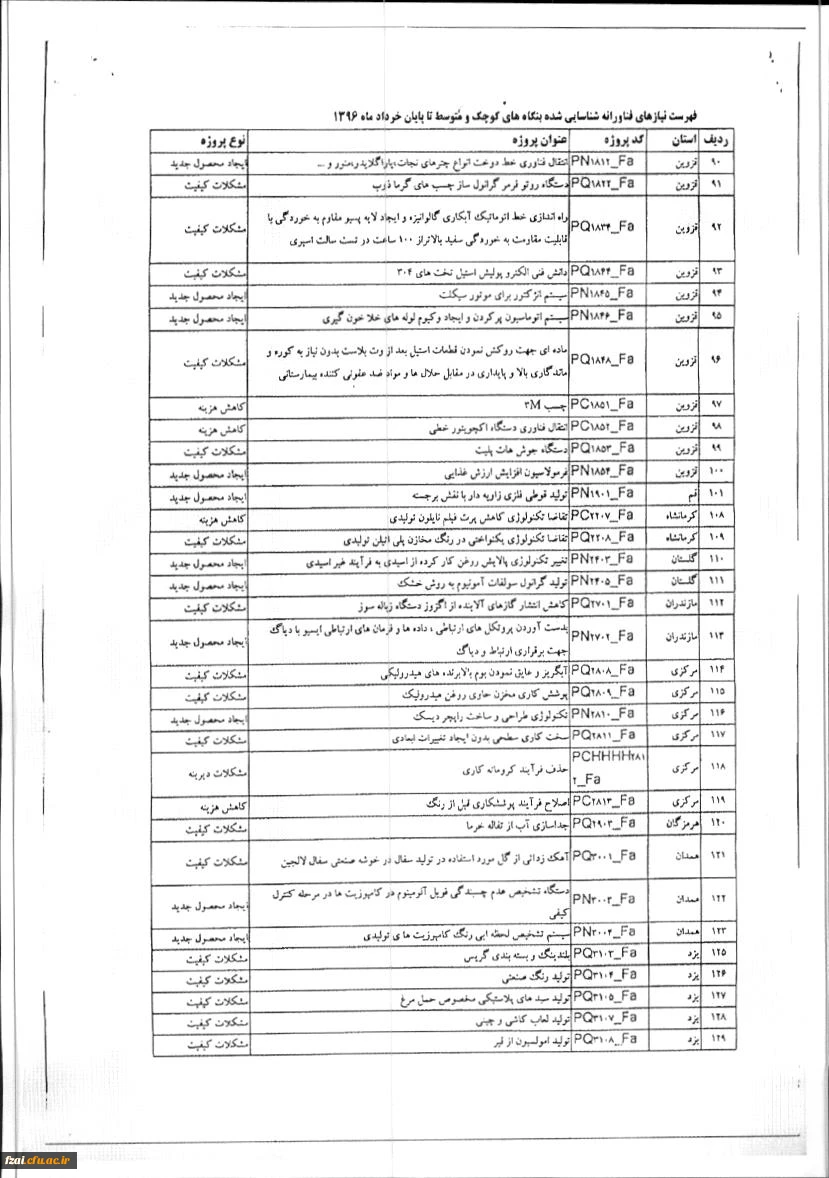 فهرست نیازهای فناورانه شناسایی شده بنگاه های کوچک و متوسط تا پایان خرداد ماه ۱۳۹۶
ردیف استان کد پروژه عنوان پروژه نوع پروژه
۹۰ قزوین PN۱۸۱۲_Fa انتقال فناوری خط دوخت انواع چترهای نجات،پاراگلایدر،منور و ... ایجاد محصول جدید
۹۱ قزوین PQ۱۸۲۲_Fa دستگاه روتو فرمر گرانول ساز چسب های گرما ذوب مشکلات کیفیت
راه اندازی خط اتوماتیک آبکاری گالوانیزه و ایجاد لایه پسیو مقاوم به خوردگی با
۹۲ قزوین PQ۱۸۳۴_Fa قابلیت مقاومت به خوردگی سفید بالاتراز ۱۰۰ ساعت در تست سالت اسپری مشکلات کیفیت
۹۳ قزوین PQ۱۸۴۴_Fa دانش فنی الکترو پولیش استیل تخت های ۳۰۴ مشکلات کیفیت
۹۴ قزوین PN۱۸۴۵_Fa سیستم انژکتور برای موتور سیکلت ایجاد محصول جدید
۹۵ قزوین PN۱۸۴۶_Fa سیستم اتوماسیون پرکردن و ایجاد وکیوم لوله های خلا خون گیری ایجاد محصول جدید
ماده ای جهت روکش نمودن قطعات استیل بعد از وت بلاست بدون نیاز به کوره و
۹۶ قزوین PQ۱۸۴۸_Fa ماندگاری بالا و پایداری در مقابل حلال ها و مواد ضد عفونی کننده بیمارستانی مشکلات کیفیت
۹۷ قزوین PC۱۸۵۱_Fa چسب ۳M کاهش هزینه
۹۸ قزوین PC۱۸۵۲_Fa انتقال فناوری دستگاه اکچویتور خطی کاهش هزینه
۹۹ قزوین PQ۱۸۵۳_Fa دستگاه جوش هات پلیت مشکلات کیفیت
۱۰۰ قزوین PN۱۸۵۴_Fa فرمولاسیون افزایش ارزش غذایی ایجاد محصول جدید
۱۰۱ قم PN۱۹۰۱_Fa تولید قوطی فلزی زاویه دار با نقش برجسته ایجاد محصول جدید
۱۰۸ کرمانشاه PC۲۲۰۷_Fa تقاضا تکنولوژی کاهش پرت فیلم نایلون تولیدی کاهش هزینه
۱۰۹ کرمانشاه PQ۲۲۰۸_Fa تقاضا تکنولوژی یکنواختی در رنگ مخازن پلی اتیلن تولیدی مشکلات کیفیت
۱۱۰ گلستان PN۲۴۰۳_Fa تغییر تکنولوزی پالایش روغن کار کرده از اسیدی به فرآیند غیر اسیدی ایجاد محصول جدید
۱۱۱ گلستان PN۲۴۰۵_Fa تولید گرانول سولفات آمونیوم به روش خشک ایجاد محصول جدید
۱۱۲ مازندران PQ۲۷۰۱_Fa کاهش انتشار گازهای آلاینده از اگزوز دستگاه زباله سوز مشکلات کیفیت
بدست آوردن پروتکل های ارتباطی ، داده ها و فرمان های ارتباطی ایسیو با دیاگ
۱۱۳ مازندران PN۲۷۰۲_Fa جهت برقراری ارتباط و دیاگ ایجاد محصول جدید
۱۱۴ مرکزی PQ۲۸۰۸_Fa آبگریز و عایق نمودن بوم بالابرنده های هیدرولیکی مشکلات کیفیت
۱۱۵ مرکزی PQ۲۸۰۹_Fa پوشش کاری مخزن حاوی روغن هیدرولیک مشکلات کیفیت
۱۱۶ مرکزی PN۲۸۱۰_Fa تکنولوژی طراحی و ساخت راپچر دیسک ایجاد محصول جدید
۱۱۷ مرکزی PQ۲۸۱۱_Fa سخت کاری سطحی بدون ایجاد تغییرات ابعادی مشکلات کیفیت
PCHHHH۲۸۱
۱۱۸ مرکزی ۲_Fa حذف فرآیند کروماته کاری مشکلات دیرینه
۱۱۹ مرکزی PC۲۸۱۳_Fa اصلاح فرآیند پوششکاری قبل از رنگ کاهش هزینه
۱۲۰ هرمزگان PQ۲۹۰۳_Fa جداسازی آب از تفاله خرما مشکلات کیفیت
۱۲۱ همدان PQ۳۰۰۱_Fa آهک زدائی از گل مورد استفاده در تولید سفال در خوشه صنعتی سفال لالجین مشکلات کیفیت
دستگاه تشخیص عدم چسبندگی فویل آلومینوم در کامپوزیت ها در مرحله کنترل
۱۲۲ همدان PN۳۰۰۳_Fa کیفی ایجاد محصول جدید
۱۲۳ همدان PN۳۰۰۴_Fa سیستم تشخیص لحظه ایی رنگ کامپوزیت های تولیدی ایجاد محصول جدید
۱۲۵ یزد PQ۳۱۰۳_Fa بلندینگ و بسته بندی گریس مشکلات کیفیت
۱۲۶ یزد PQ۳۱۰۴_Fa تولید رنگ صنعتی مشکلات کیفیت
۱۲۷ یزد PQ۳۱۰۵_Fa تولید سبد های پلاستیکی مخصوص حمل مرغ مشکلات کیفیت
۱۲۸ یزد PQ۳۱۰۷_Fa تولید لعاب کاشی و چینی مشکلات کیفیت
۱۲۹ یزد PQ۳۱۰۸_Fa تولید امولسیون از قیر مشکلات کیفیت
fzai.cfu.ac.ir